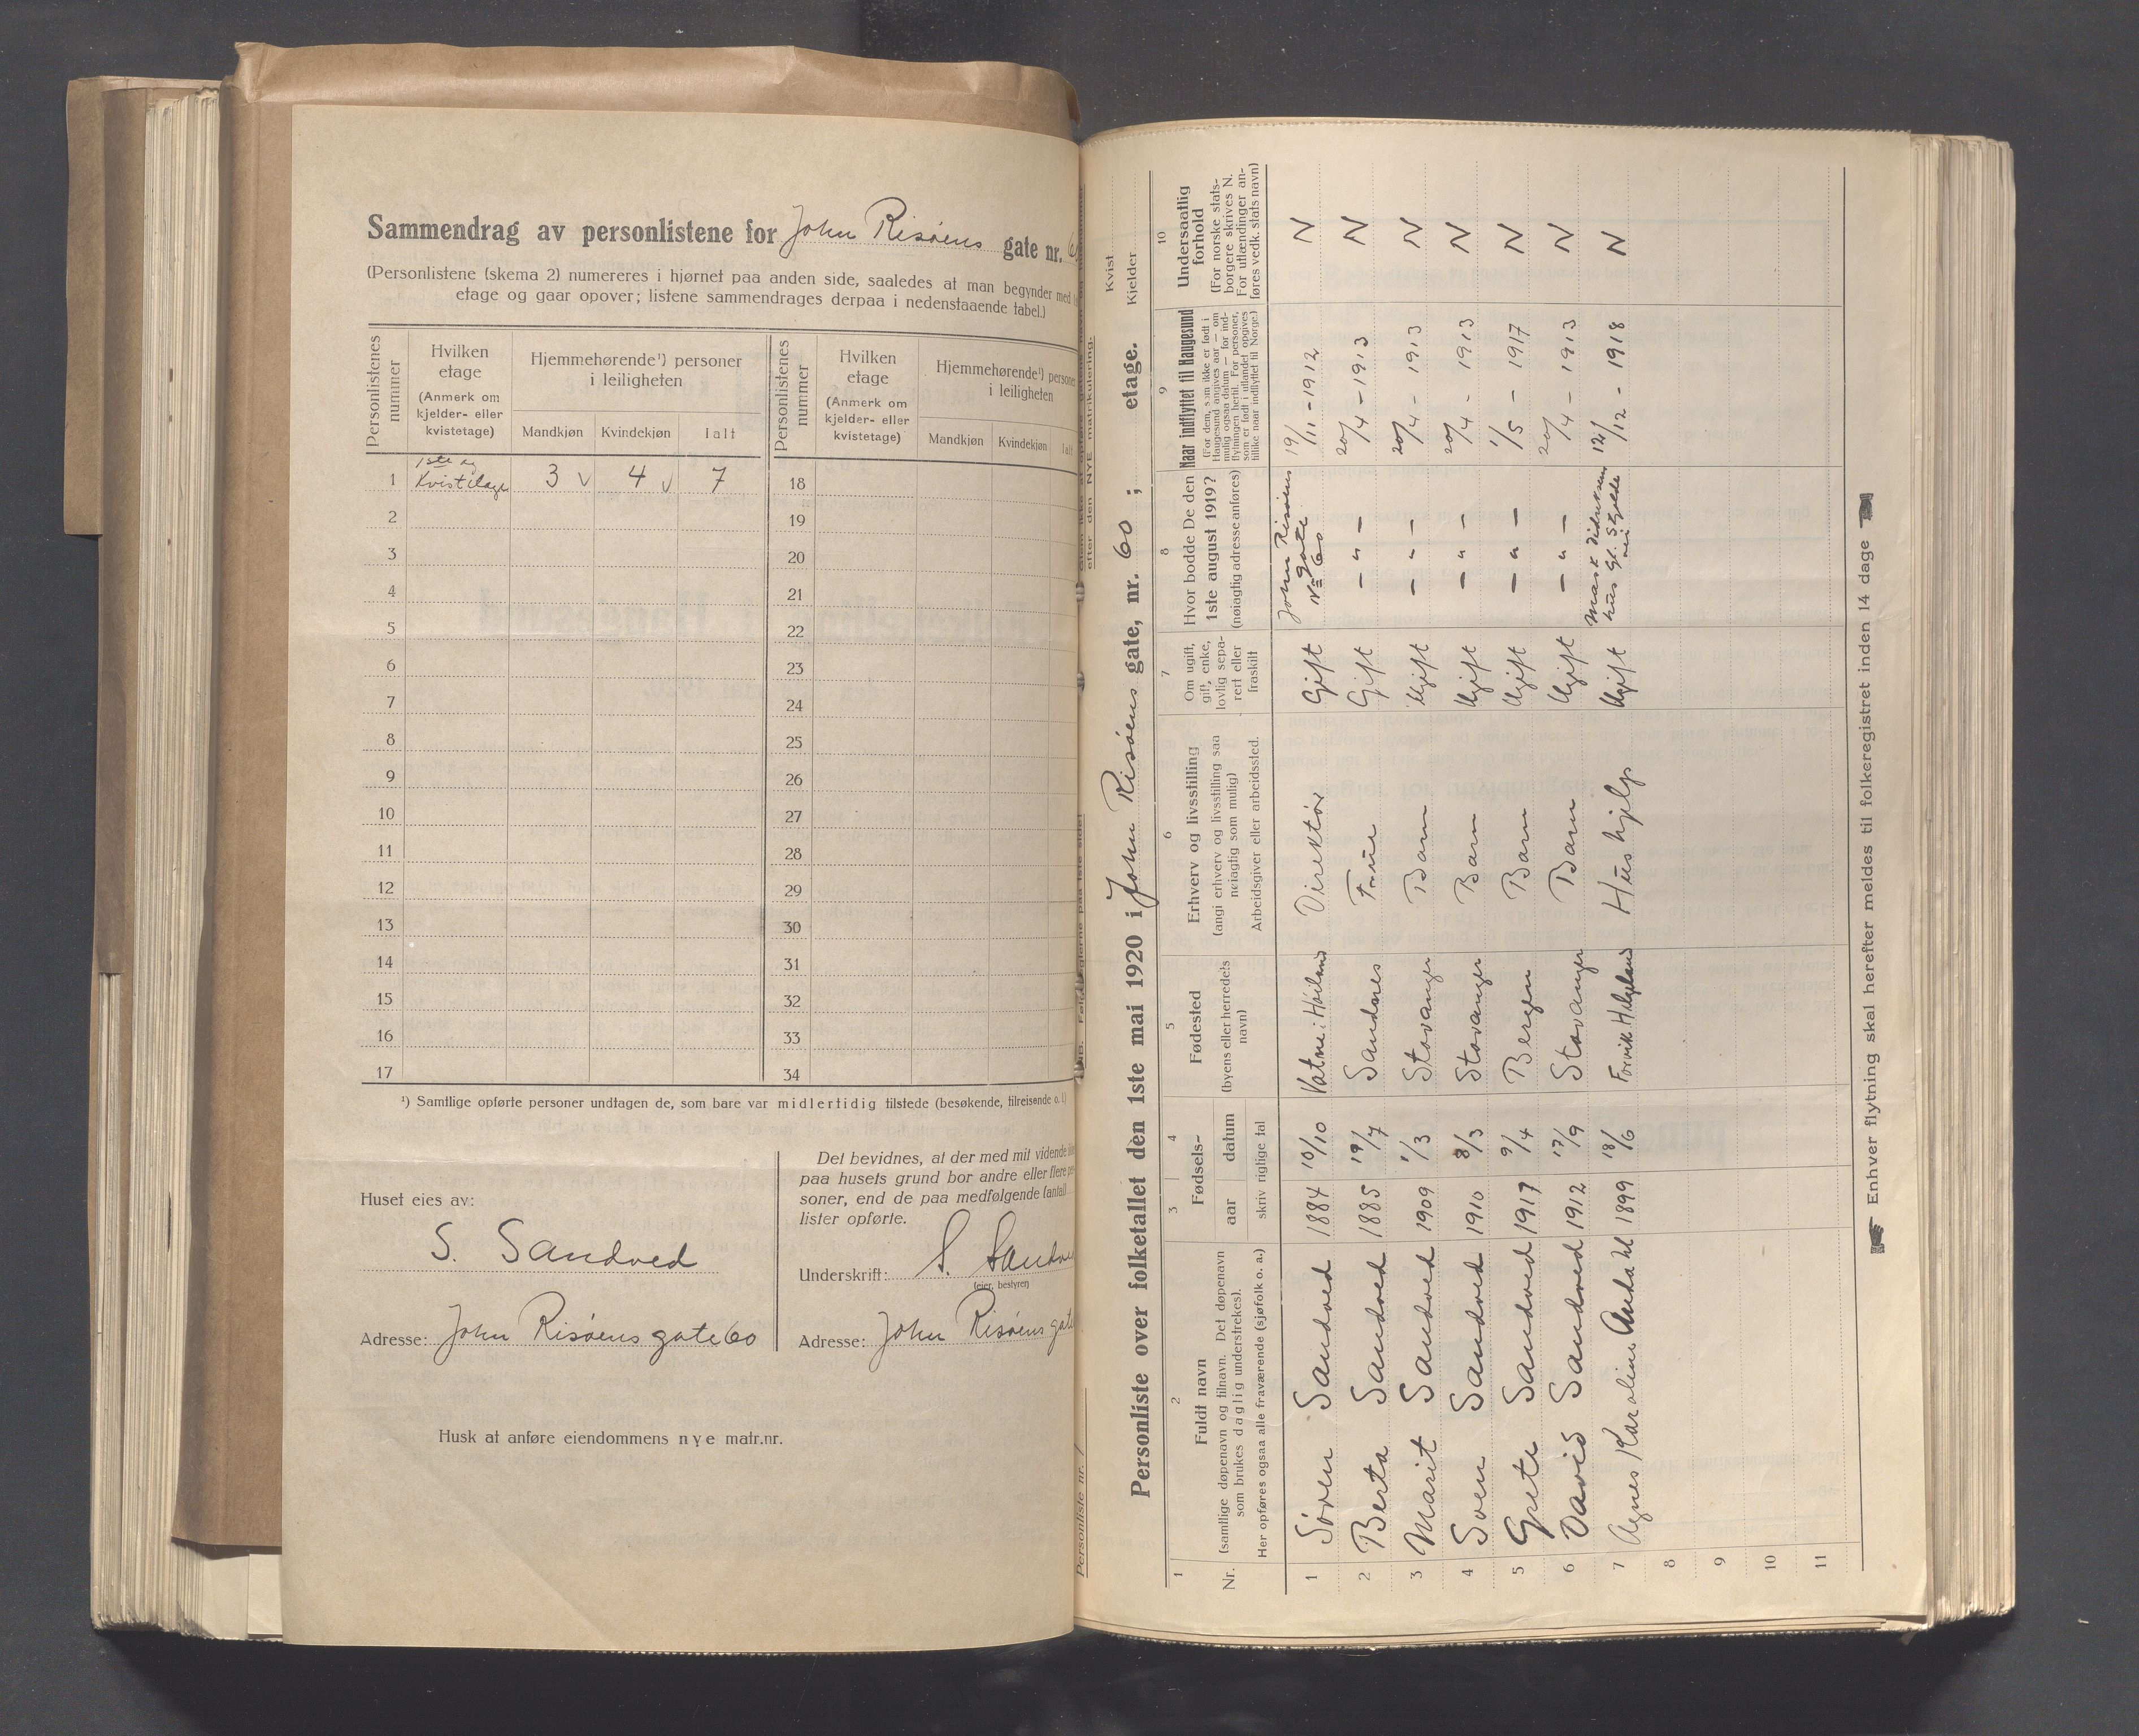 Sammendrag av personlistene for John Risøens gate nr. 6
(Personlistene (skema 2) numereres i hjørnet paa anden side, saaledes at man begynder med
etage og gaar opover; listene sammendrages derpaa i nedenstaaende tabel.)
Personlistenes nummer
Hvilken etage
(Anmerk om kjelder- eller kvistetage)
Hjemmehørende¹) personer i leiligheten
Mandkjøn Kvindekjøn Ialt
Personlistenes nummer
Hvilken etage
(Anmerk om kjelder- eller kvistetage)
Hjemmehørende¹) persone i leiligheten
Mandkjøn Kvindekjøn Ialt
1 1ste og Kvistetage 3 v 4 v 7 18
2 19
3 20
4 21
5 22
6 23
7 24
8 25
9 26
10 27
11 28
12 29
13 30
14 31
15 32
16 33
17 34
¹) Samtlige opførte personer undtagen de, som bare var midlertidig tilstede (besøkende, tilreisende o. l)
Huset eies av:
S. Sandved
Adresse: John Risøens gate 60
Det bevidnes, at der med mit vidende
paa husets grund bor andre eller flere per
soner, end de paa medfølgende (antal)
lister opførte.
Underskrift: S. Sandve
(eier, bestyrer)
Adresse: John Risøens gate
Husk at anføre eiendommens nye matr.nr.
Personliste nr. 1
efter den NYE matrikulering.
Personliste over folketallet den 1ste mai 1920 i John Risøens gate, nr. 60 ; etage. Kvist Kjelder
1
Nr.
2
Fuldt navn
(samtlige døpenavn og tilnavn. Det døpenavn
som brukes daglig understrekes).
Her opføres ogsaa alle fraværende (sjøfolk o. a.)
3 4
Fødsels-
aar datum
skriv riglige tal
5
Fødested
(byens eller herredets
navn)
6
Erhverv og livsstilling
(angi erhverv og livsstilling saa
nøiagtig som mulig)
Arbeidsgiver eller arbeidssted.
7
Om ugift,
gift, enke,
lovlig sepa-
rert eller
fraskilt
8
Hvor bodde De den
1ste august 1919?
(nøiagtig adresse anføres)
9
Naar indflyttet til Haugesund
(For dem, som ikke er født i
Haugesund angives aar — om
mulig ogsaa datum — for ind-
flytningen hertil. For personer,
som er født i utlandet opgives
tillike naar indflyttet til Norge.)
10
Undersaatlig
forhold
(For norske stats-
borgere skrives N.
For utlændinger an-
føres vedk. stats navn)
1 Søren Sandved 1884 10/10 Vatne i Høiland Direktør Gift John Risøens gate No 60 19/11 - 1912 N
2 Berta Sandved 1885 19/7 Sandnes Frue Gift — " — 20/4 - 1913 N
3 Marit Sandved 1909 1/3 Stavanger Barn Ugift — " — 20/4 - 1913 N
4 Sven Sandved 1910 8/3 Stavanger Barn Ugift — " — 20/4 - 1913 N
5 Grete Sandved 1917 9/4 Bergen Barn Ugift — " — 1/5 - 1917 N
6 David Sandved 1912 17/9 Stavanger Barn Ugift — " — 20/4 - 1913 N
7 Agnes Karoline Aandahl 1899 18/6 Forvik Helgeland Hushjelp Ugift 12/12 - 1918 N
8
9
10
11
Enhver flytning skal herefter meldes til folkeregistret inden 14 dage